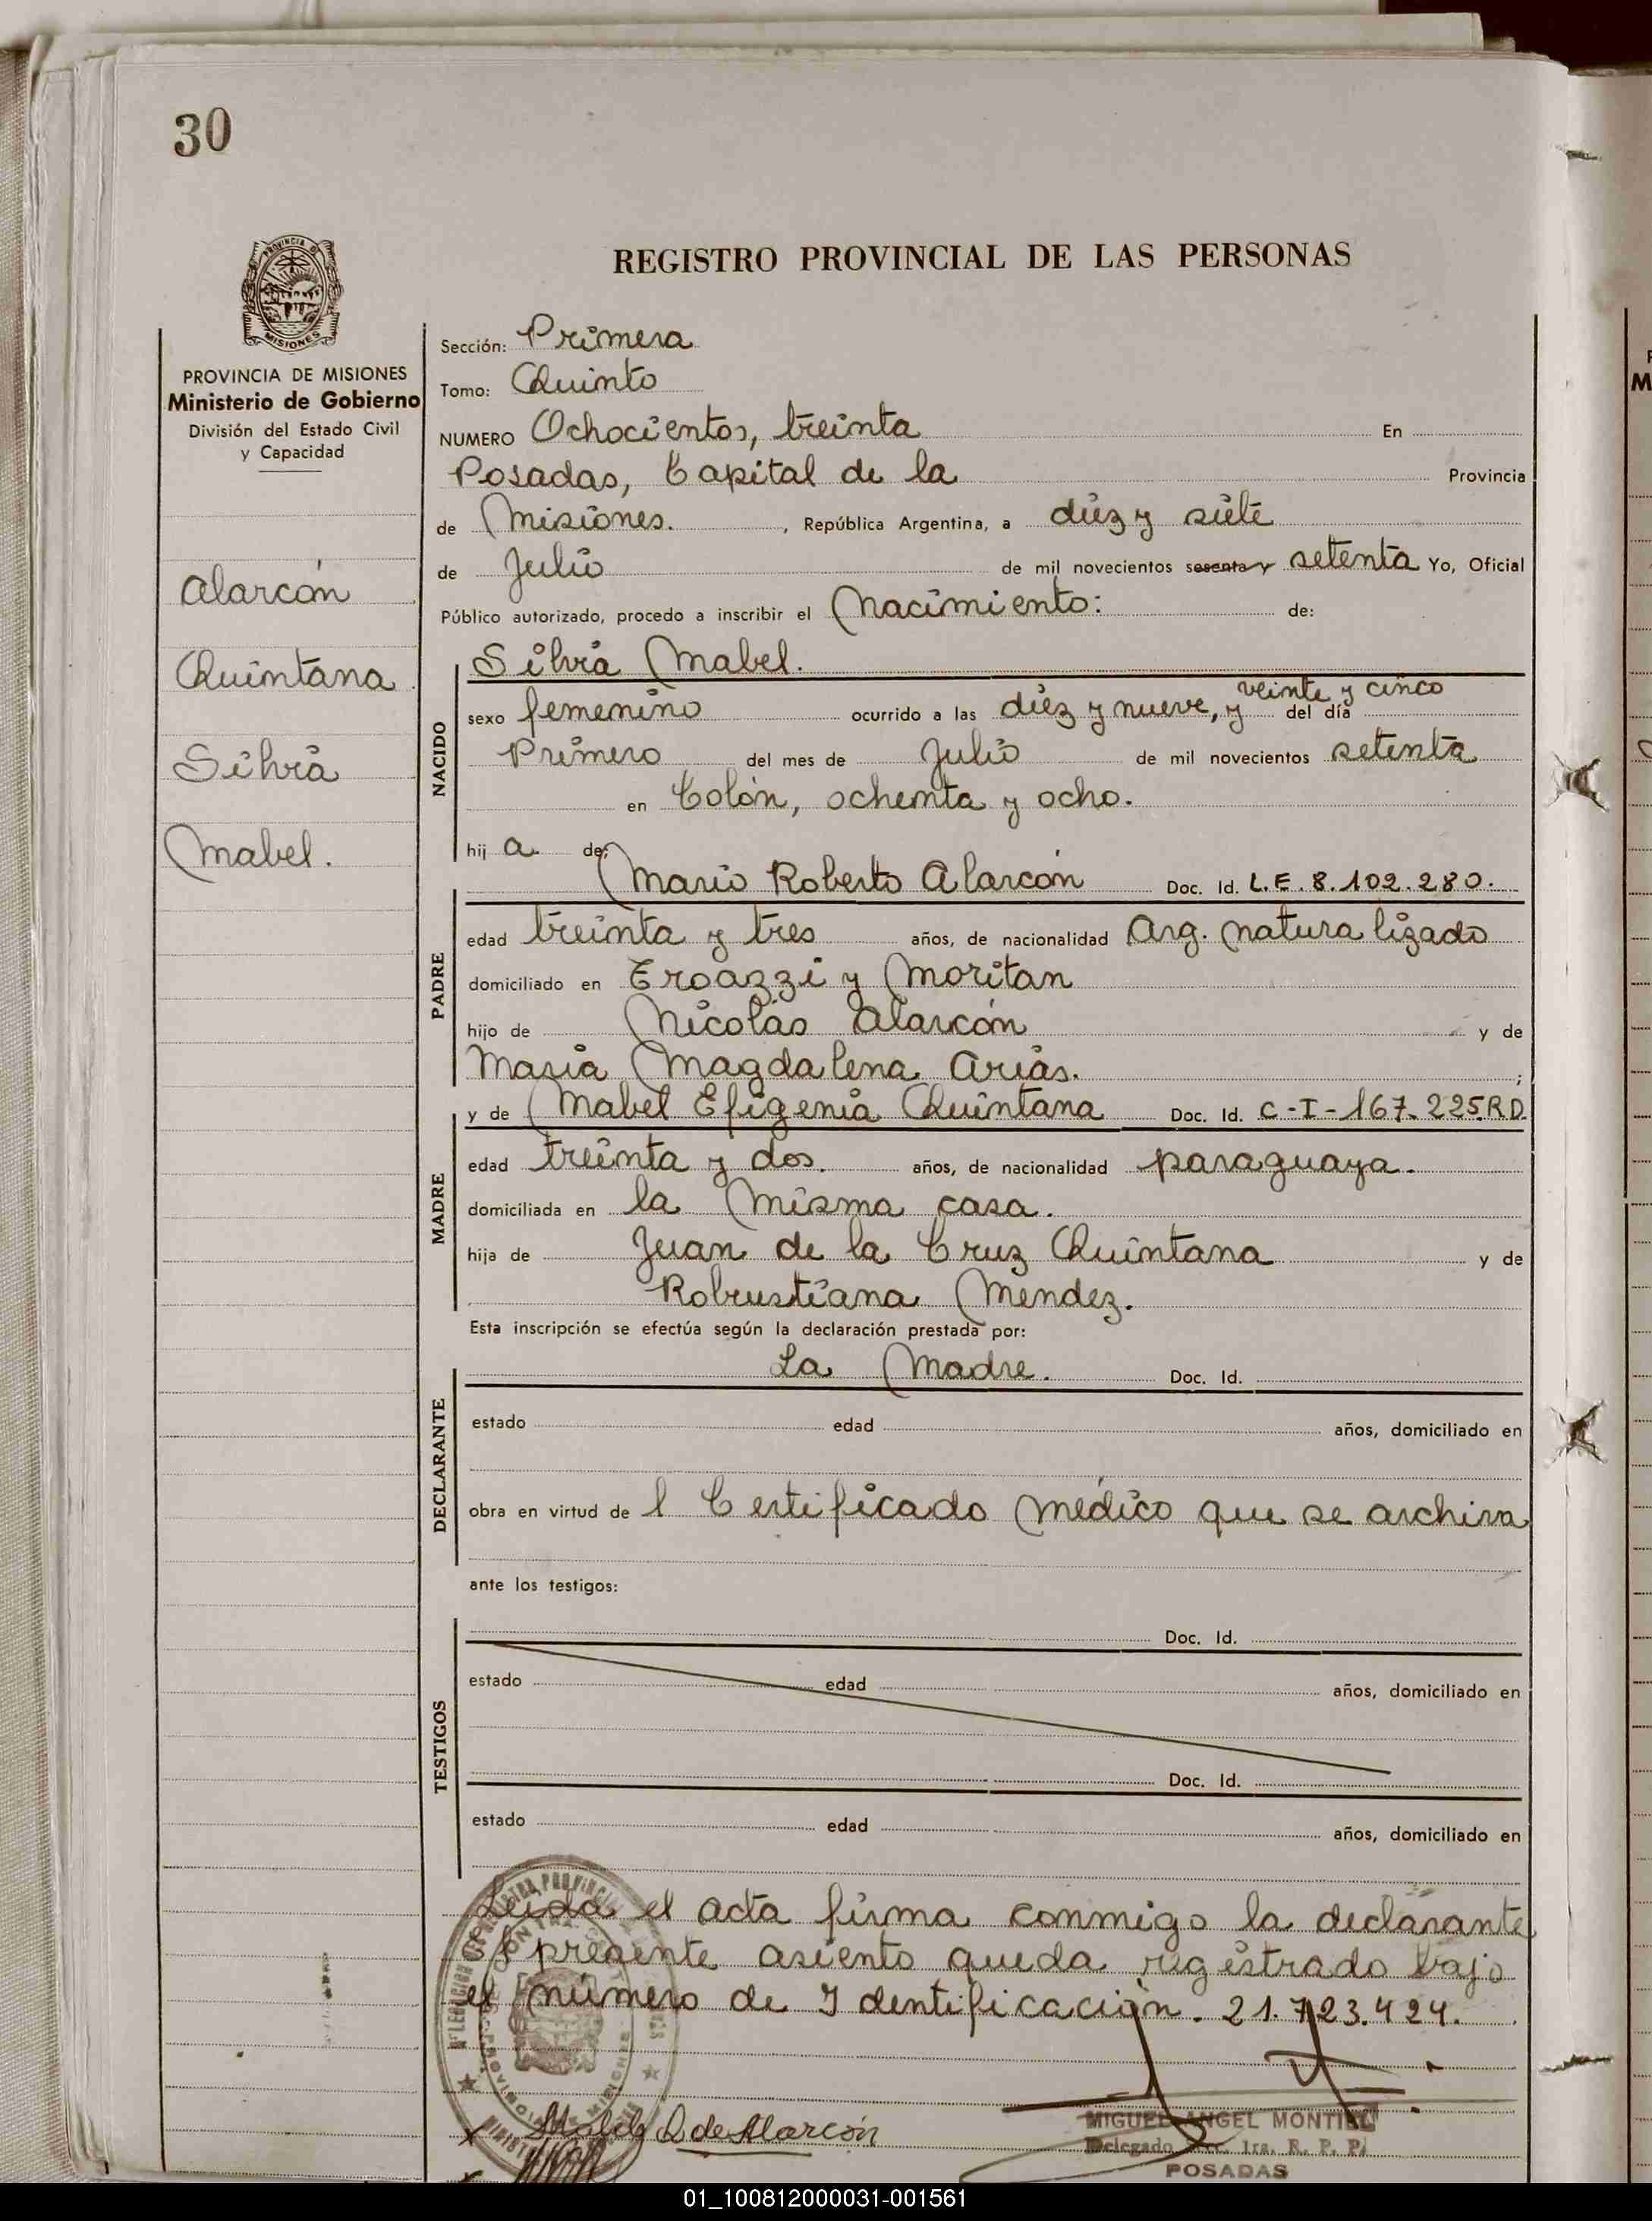 30
REGISTRO PROVINCIAL DE LAS PERSONAS
PROVINCIA DE MISIONES
Ministerio de Gobierno
División del Estado Civil
y Capacidad
Alarcón
Quintana
Silvia
Mabel.
Sección: Primera
Tomo: Quinto
NUMERO Ochocientos, treinta En
Posadas, Capital de la Provincia
de Misiones. , República Argentina, a diez y siete
de Julio de mil novecientos sesenta y setenta Yo, Oficial
Público autorizado, procedo a inscribir el Nacimiento: de:
Silvia Mabel.
NACIDO
sexo femenino ocurrido a las diez y nueve, y veinte y cinco del día
Primero del mes de Julio de mil novecientos setenta
en Colón, ochenta y ocho.
hij a de:
Mario Roberto Alarcón Doc. Id. L.E. 8.102.280.
PADRE
edad treinta y tres años, de nacionalidad Arg. naturalizado
domiciliado en Eroazzi y Moritan
hijo de Nicolás Alarcón y de
María Magdalena Arias. ;
y de Mabel Efigenia Quintana Doc. Id. C-I-167.225R.D.
MADRE
edad treinta y dos. años, de nacionalidad paraguaya.
domiciliada en la misma casa.
hija de Juan de la Cruz Quintana y de
Robustiana Mendez.
Esta inscripción se efectúa según la declaración prestada por:
La Madre. Doc. Id.
DECLARANTE
estado edad años, domiciliado en
obra en virtud de l Certificado médico que se archiva
ante los testigos:
Doc. Id.
TESTIGOS
estado edad años, domiciliado en
Doc. Id.
estado edad años, domiciliado en
Leída el acta firma conmigo la declarante
El presente asiento queda registrado bajo
el número de Identificación. 21.723.424.
Q de Alarcón
MIGUEL ANGEL MONTIEL
Delegado Sec. 1ra. R. P. P.
POSADAS
01_100812000031-001561